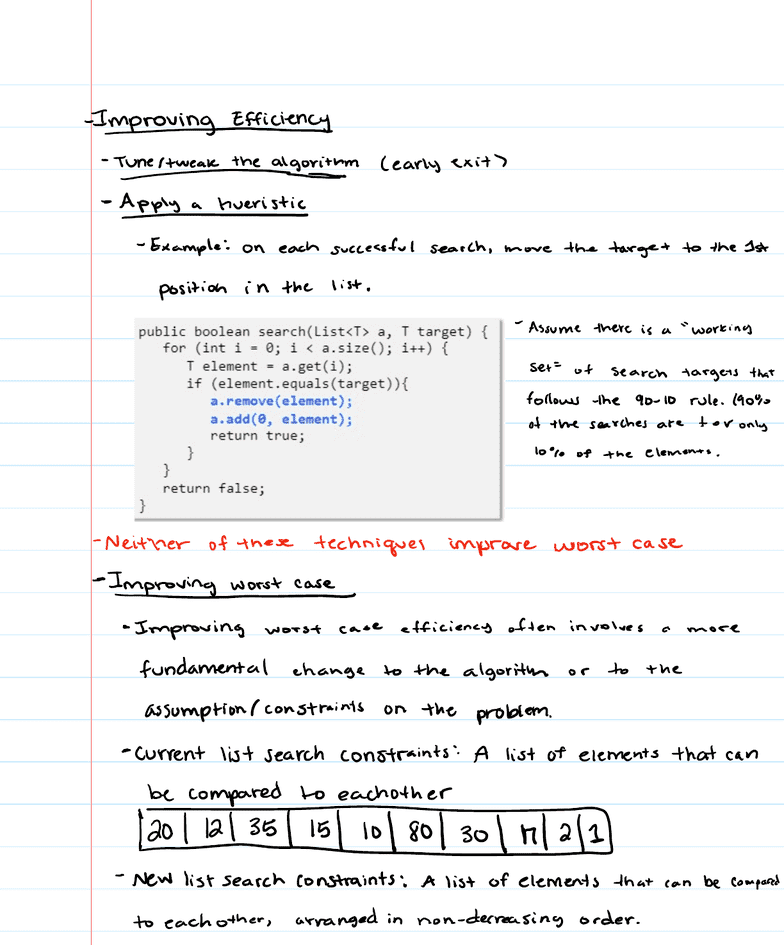 -Improving Efficiency
- Tune/tweak the algorithm (early exit)
- Apply a hueristic
- Example: on each successful search, move the target to the 1st
position in the list.
public boolean search(List<T> a, T target) {
for (int i = 0; i < a.size(); i++) {
T element = a.get(i);
if (element.equals(target)){
a.remove(element);
a.add(0, element);
return true;
}
}
return false;
}
- Assume there is a "working
set" of search targets that
follows the 90-10 rule. (90%
of the searches are for only
10% of the elements.
-Neither of these techniques improve worst case
-Improving worst case
-Improving worst case efficiency often involves a more
fundamental change to the algorithm or to the
assumption/constraints on the problem.
-Current list search constraints: A list of elements that can
be compared to eachother
20 12 35 15 10 80 30 17 2 1
- New list search constraints: A list of elements that can be compared
to eachother, arranged in non-decreasing order.